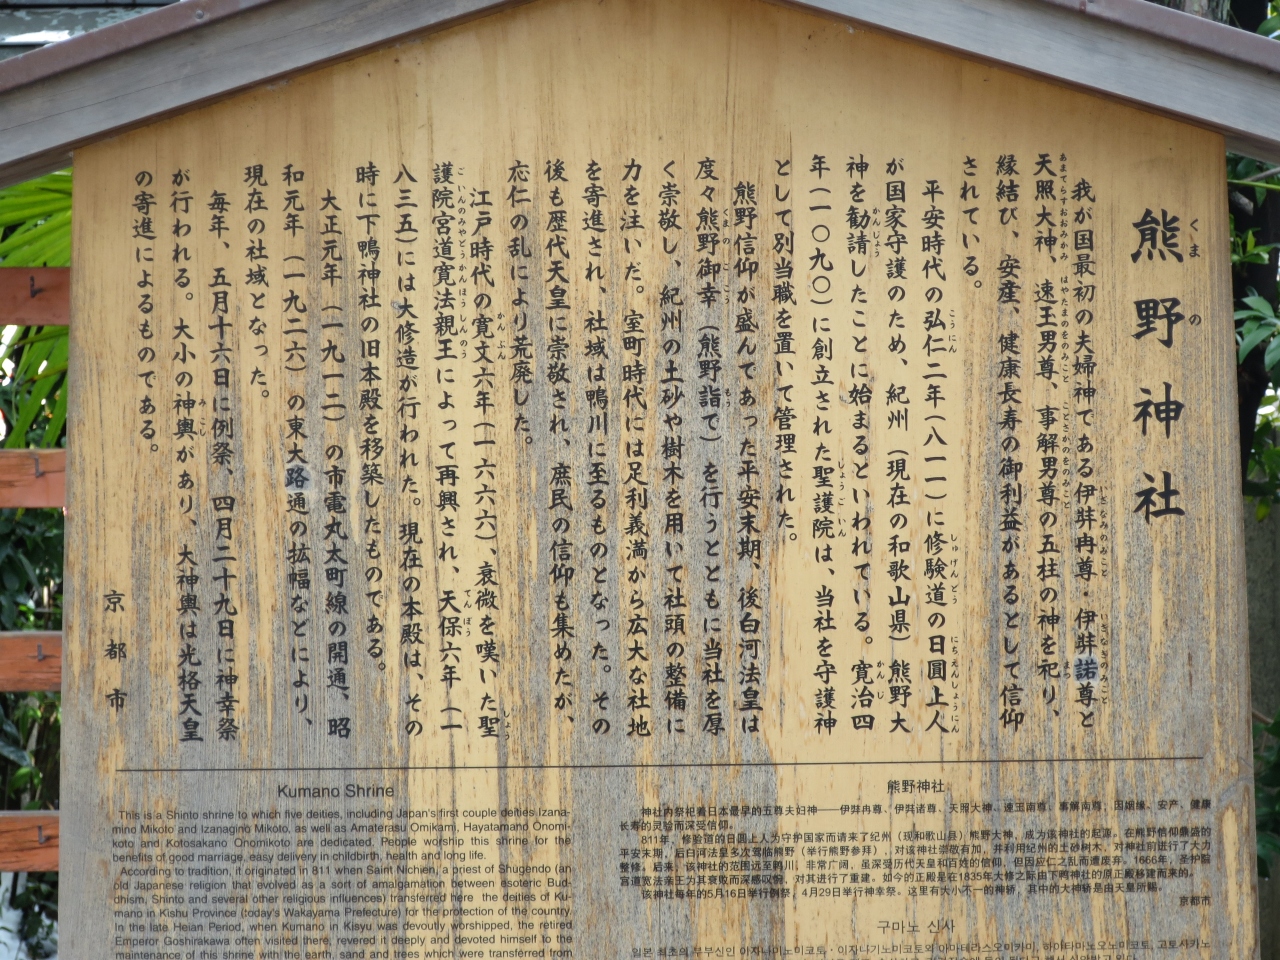 熊野神社
我が国最初の夫婦神である伊弉冉尊・伊弉諾尊と
天照大神、速玉男尊、事解男尊の五柱の神を祀り、
縁結び、安産、健康長寿の御利益があるとして信仰
されている。
平安時代の弘仁二年(八一一)に修験道の日圓上人
が国家守護のため、紀州(現在の和歌山県)熊野大
神を勧請したことに始まるといわれている。寛治四
年(一〇九〇)に創立された聖護院は、当社を守護神
として別当職を置いて管理された。
熊野信仰が盛んであった平安末期、後白河法皇は
度々熊野御幸(熊野詣で)を行うとともに当社を厚
く崇敬し、紀州の土砂や樹木を用いて社頭の整備に
力を注いだ。室町時代には足利義満から広大な社地
を寄進され、社域は鴨川に至るものとなった。その
後も歴代天皇に崇敬され、庶民の信仰も集めたが、
応仁の乱により荒廃した。
江戸時代の寛文六年(一六六六)、衰微を嘆いた聖
護院宮道寛法親王によって再興され、天保六年(一
八三五)には大修造が行われた。現在の本殿は、その
時に下鴨神社の旧本殿を移築したものである。
大正元年(一九一二)の市電丸太町線の開通、昭
和元年(一九二六)の東大路通の拡幅などにより、
現在の社域となった。
毎年、五月十六日に例祭、四月二十九日に神幸祭
が行われる。大小の神輿があり、大神輿は光格天皇
の寄進によるものである。
京都市
Kumano Shrine
This is a Shinto shrine to which five deities, including Japan's first couple deities Izana-
mino Mikoto and Izanagino Mikoto, as well as Amaterasu Omikami, Hayatamano Onomi-
koto and Kotosakano Onomikoto are dedicated. People worship this shrine for the
benefits of good marriage, easy delivery in childbirth, health and long life.
According to tradition, it originated in 811 when Saint Nichien, a priest of Shugendo (an
old Japanese religion that evolved as a sort of amalgamation between esoteric Bud-
dhism, Shinto and several other religious influences) transferred here the deities of Ku-
mano in Kishu Province (today's Wakayama Prefecture) for the protection of the country.
In the late Heian Period, when Kumano in Kisyu was devoutly worshipped, the retired
Emperor Goshirakawa often visited there, revered it deeply and devoted himself to the
maintenance of this shrine with the earth, sand and trees which were transferred from
熊野神社
神社内祭祀着日本最早的五尊夫妇神——伊弉冉尊、伊弉诸尊、天照大神、速玉南尊、事解南尊；因姻缘、安产、健康
长寿的灵验而深受信仰。
811年，修验道的日圆上人为守护国家而请来了纪州（现和歌山县）熊野大神，成为该神社的起源。在熊野信仰鼎盛的
平安末期，后白河法皇多次驾临熊野（举行熊野参拜），对该神社崇敬有加，并利用纪州的土砂树木，对神社前进行了大力
整修。后来，该神社的范围远至鸭川，非常广阔，虽深受历代天皇和百姓的信仰，但因应仁之乱而遭废弃。1666年，圣护院
宫道宽法亲王为其衰败而深感叹惋，对其进行了重建。如今的正殿是在1835年大修之际由下鸭神社的原正殿移建而来的。
该神社每年的5月16日举行例祭，4月29日举行神幸祭。这里有大小不一的神轿，其中的大神轿是由天皇所赐。
京都市
구마노 신사
일본 최초의 부부신인 이자나미노미코토・이자나기노미코토와 아마테라스오미카미, 하야타마노오노미코토, 고토사카노